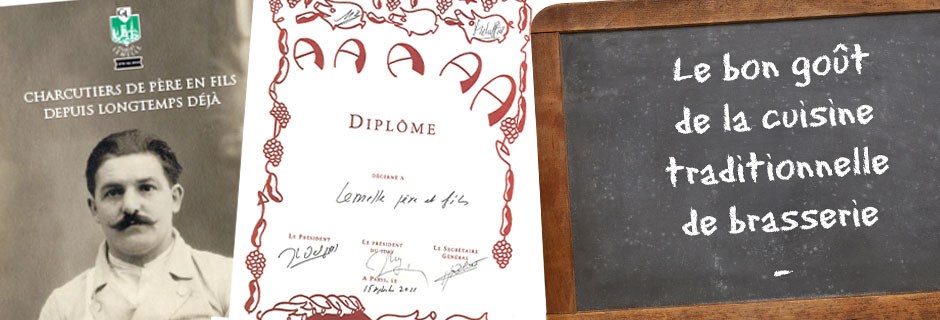 CHARCUTIERS DE PÈRE EN FILS
DEPUIS LONGTEMPS DÉJÀ
A A A A A
DIPLÔME
DÉCERNÉ À
Lemelle père et fils
LE PRÉSIDENT
LE PRÉSIDENT
LE SECRÉTAIRE
GÉNÉRAL
A PARIS, LE
2011
Le bon goût
de la cuisine
traditionnelle
de brasserie
-